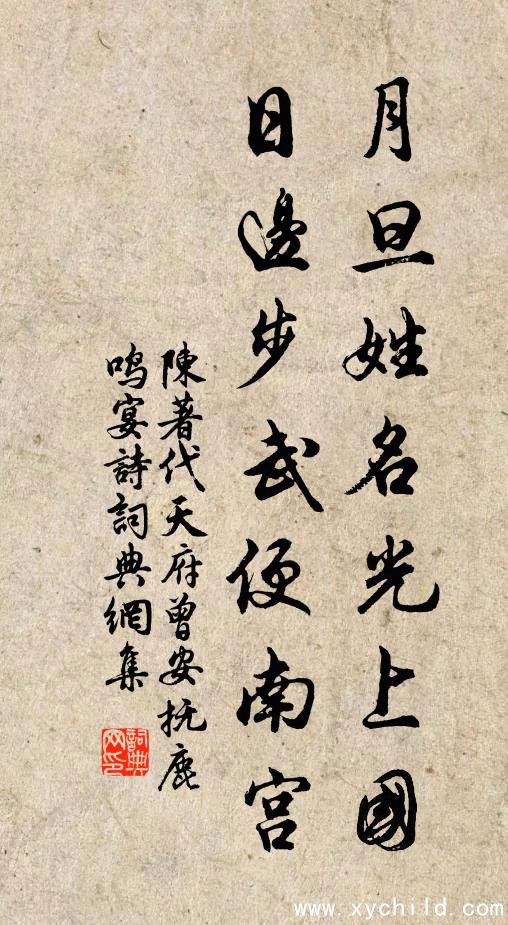 月旦姓名光上國
日邊步武便南宮
陳著代天府曾安抚鹿
鳴宴詩詞典網集
詞典
网印
www.xychild.com